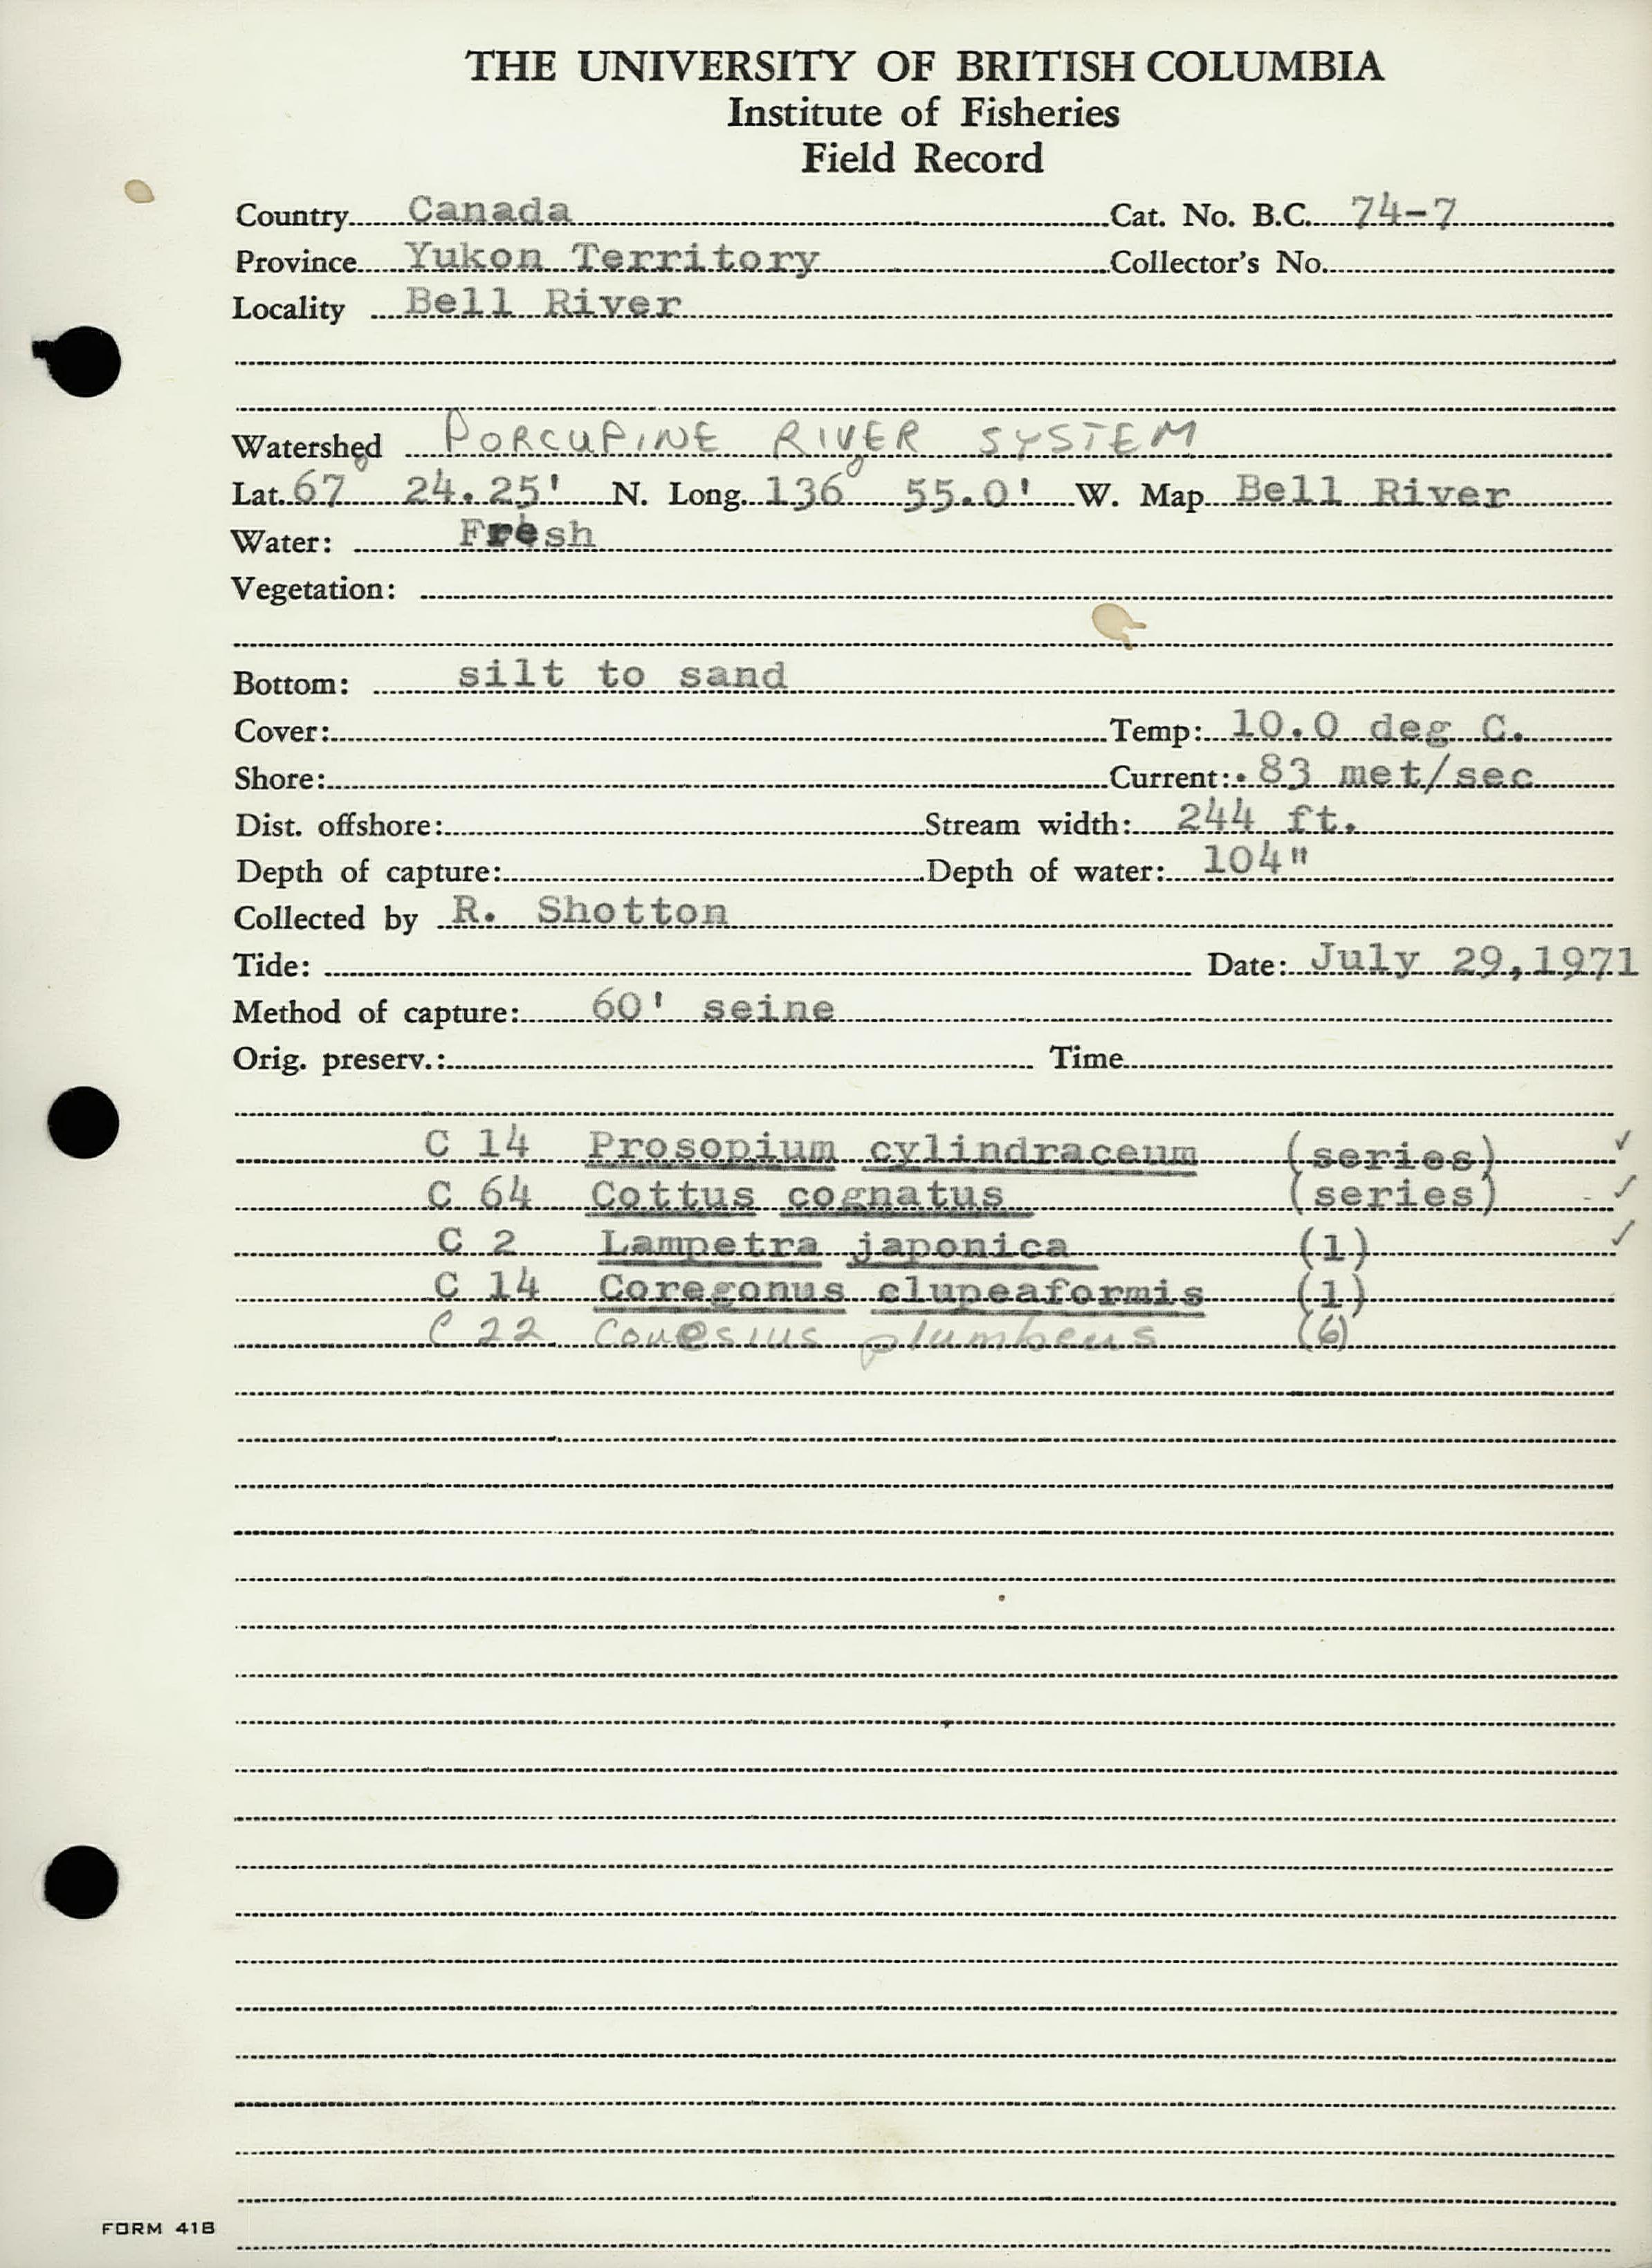 THE UNIVERSITY OF BRITISH COLUMBIA
Institute of Fisheries
Field Record
Country Canada Cat. No. B.C. 74-7
Province Yukon Territory Collector's No.
Locality Bell River
Watershed PORCUPINE RIVER SYSTEM
Lat. 67° 24.25' N. Long. 136° 55.0' W. Map Bell River
Water: Fresh
Vegetation:
Bottom: silt to sand
Cover: Temp: 10.0 deg C.
Shore: Current: .83 met/sec
Dist. offshore: Stream width: 244 ft.
Depth of capture: Depth of water: 104"
Collected by R. Shotton
Tide: Date: July 29,1971
Method of capture: 60' seine
Orig. preserv.: Time
C 14 Prosopium cylindraceum (series) ✓
C 64 Cottus cognatus (series) ✓
C 2 Lampetra japonica (1) ✓
C 14 Coregonus clupeaformis (1)
C 22 Couesius plumbeus (6)
FORM 41B